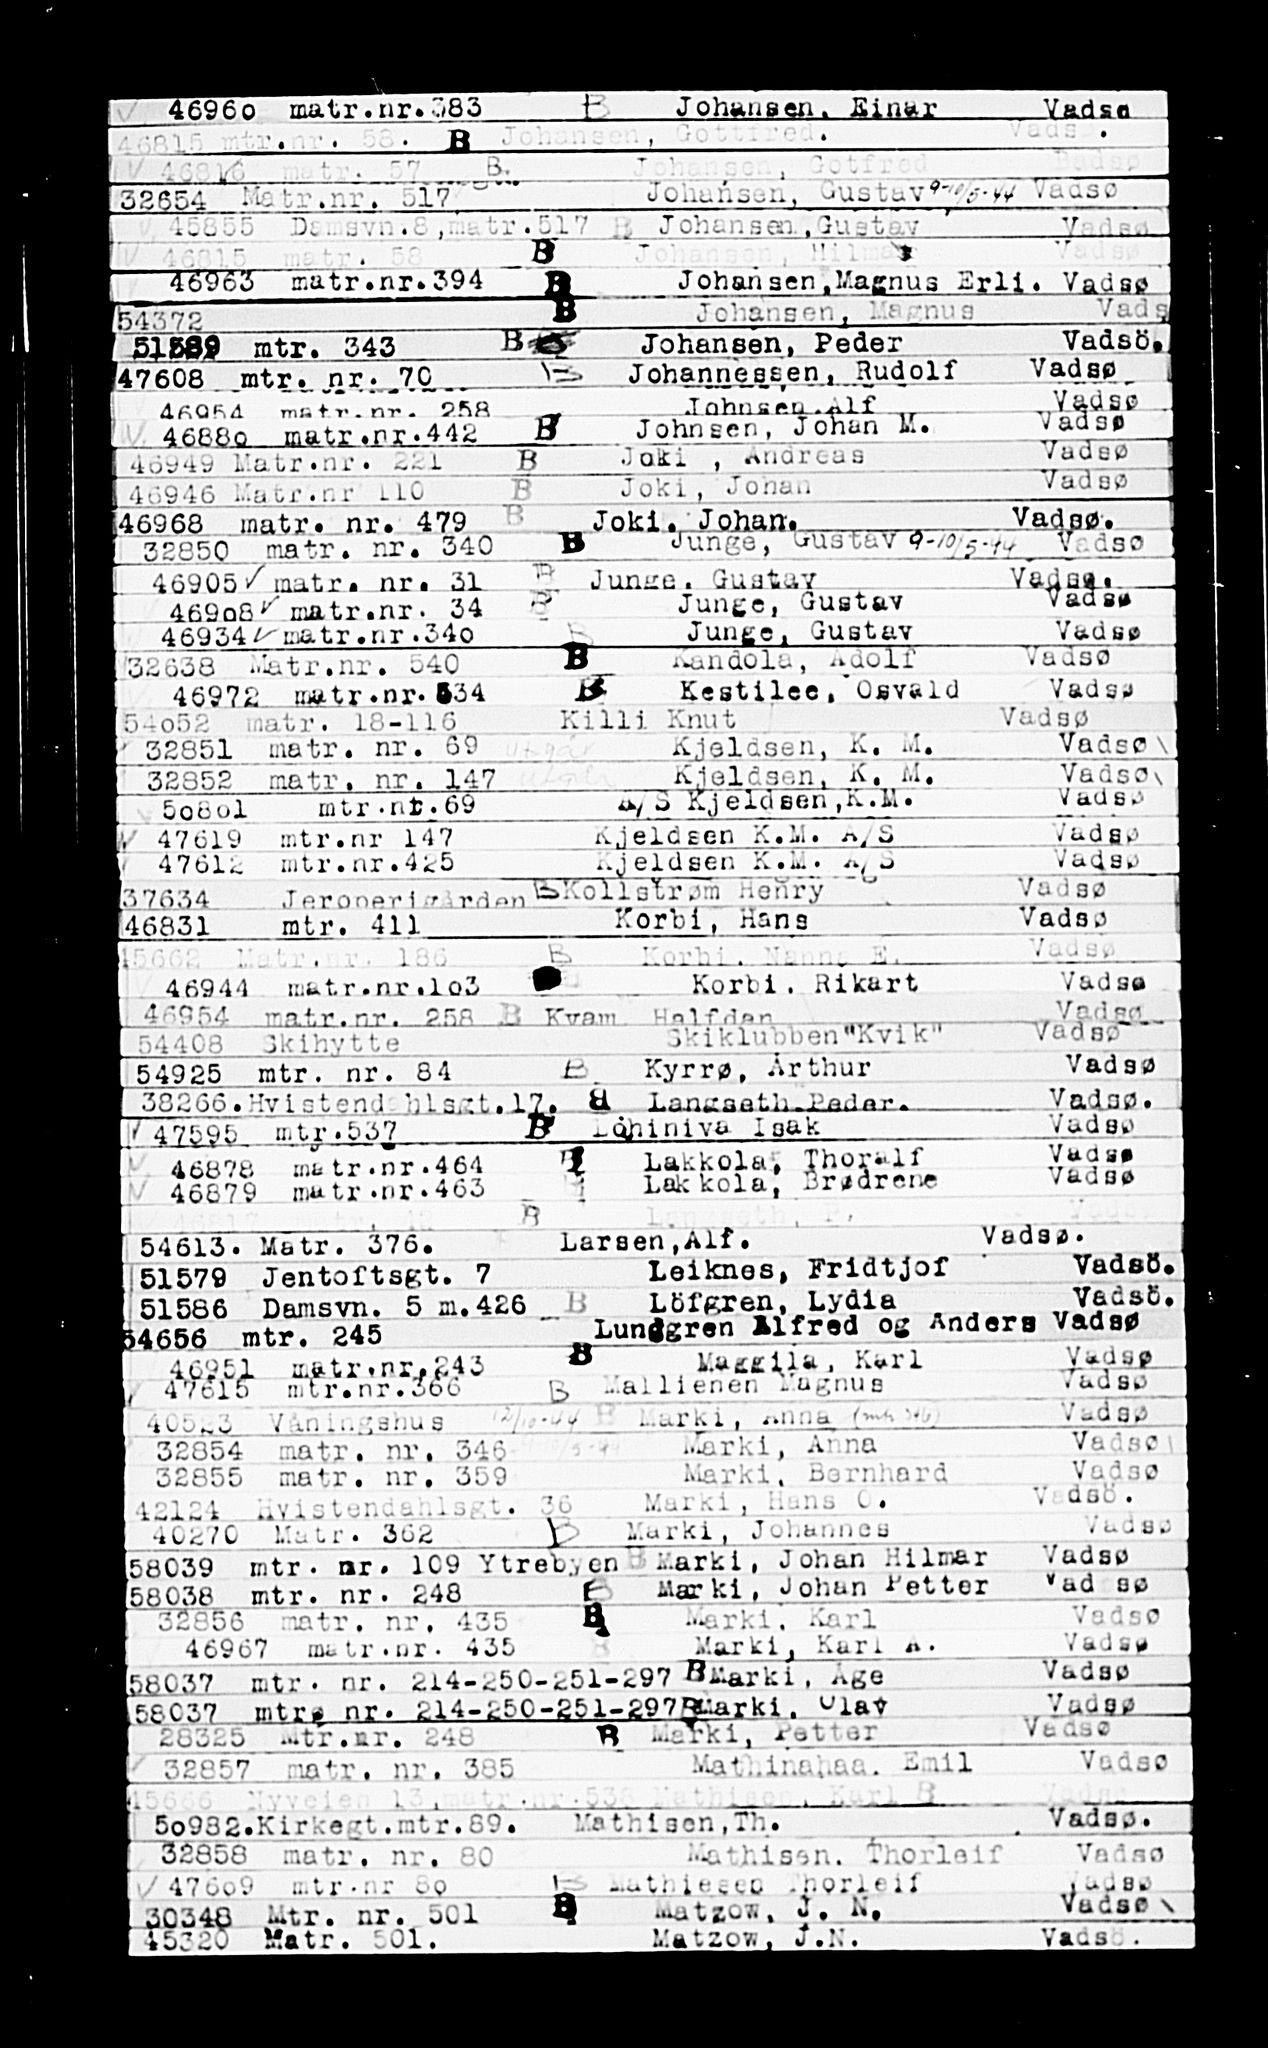 46960 matr.nr.383 B Johansen, Einar Vadsø
46815 mtr.nr. 58. B Johansen, Gottfred. Vads .
46816 matr. 57 B. Johansen, Gotfred Badsø
32654 Matr.nr. 517 Johansen, Gustav 9-10/5-44 Vadsø
45855 Damsvn.8,matr.517 B Johansen,Gustav Vadsø
46815 matr. 58 B Johansen, Hilmar Vadsø
46963 matr.nr.394 B Johansen,Magnus Erli. Vadsø
54372 B Johansen, Magnus Vads
51589 mtr. 343 B Johansen, Peder Vadsö.
47608 mtr. nr. 70 B Johannessen, Rudolf Vadsø
46954 matr.nr. 258 Johnsen,Alf Vadsø
46880 matr.nr.442 B Johnsen, Johan M. Vadsø
46949 Matr.nr. 221 B Joki , Andreas Vadsø
46946 Matr.nr 110 B Joki, Johan Vadsø
46968 matr. nr. 479 B Joki. Johan. Vadsø.
32850 matr. nr. 340 B Junge, Gustav 9-10/5-44 Vadsø
46905 ✓ matr. nr. 31 B Junge. Gustav Vadsø.
46908 ✓ matr.nr. 34 B Junge, Gustav Vadsø
46934 ✓ matr.nr.340 B Junge, Gustav Vadsø
32638 Matr.nr. 540 B Kandola, Adolf Vadsø
46972 matr.nr.534 B Kestilee, Osvald Vadsø
54052 matr. 18-116 Killi Knut Vadsø
32851 matr. nr. 69 utgår Kjeldsen, K. M. Vadsø
32852 matr. nr. 147 utgår Kjeldsen, K. M. Vadsø
50801 mtr.nr.69 A/S Kjeldsen,K.M. Vadsø
47619 mtr.nr 147 Kjeldsen K.M. A/S Vadsø
47612 mtr.nr.425 Kjeldsen K.M. A/S Vadsø
37634 Jeronerigården B Kollstrøm Henry Vadsø
46831 mtr. 411 Korbi, Hans Vadsø
45662 Matr.nr. 186 B Korbi, Nanna E. Vadsø
46944 matr.nr.103 Korbi. Rikart Vadsø
46954 matr.nr. 258 B Kvam Halfdan Vadsø
54408 Skihytte Skiklubben "Kvik" Vadsø
54925 mtr. nr. 84 B Kyrrø, Arthur Vadsø
38266.Hvistendahlsgt.17. B Langseth Peder. Vadsø.
47595 mtr.537 B Lohiniva Isak Vadsø
46878 matr.nr.464 B Lakkola, Thoralf Vadsø
46879 matr.nr.463 Lakkola, Brødrene Vadsø
46817 matr. 42 B Langseth, P. Vadsø
54613. Matr. 376. Larsen,Alf. Vadsø.
51579 Jentoftsgt. 7 Leiknes, Fridtjof Vadsö.
51586 Damsvn. 5 m.426 B Löfgren, Lydia Vadsö.
54656 mtr. 245 Lundgren Alfred og Anders Vadsø
46951 matr.nr.243 B Maggila, Karl Vadsø
47615 mtr.nr.366 B Mallienen Magnus Vadsø
40523 Våningshus 12/10-44 B Marki, Anna (mtr 346) Vadsø
32854 matr. nr. 346 9-10/5-44 Marki, Anna Vadsø
32855 matr. nr. 359 Marki, Bernhard Vadsø
42124 Hvistendahlsgt. 36 Marki, Hans O. Vadsö.
40270 Matr. 362 B Marki, Johannes Vadsø
58039 mtr. nr. 109 Ytrebyen B Marki, Johan Hilmar Vadsø
58038 mtr. nr. 248 B Marki, Johan Petter Vad sø
32856 matr. nr. 435 B Marki, Karl Vadsø
46967 matr.nr. 435 B Marki, Karl A. Vadsø
58037 mtr. nr. 214-250-251-297 B Marki, Åge Vadsø
58037 mtr. nr. 214-250-251-297 B Marki, Olav Vadsø
28325 Mtr.nr. 248 B Marki, Petter Vadsø
32857 matr. nr. 385 Mathinahaa. Emil Vadsø
45666 Nyveien 13,matr.nr.538 Mathisen, Karl B Vadsø
50982.Kirkegt.mtr.89. Mathisen,Th. Vadsø.
32858 matr. nr. 80 Mathisen. Thorleif Vadsø
47609 mtr.nr 80 B Mathiesen Thorleif Vadsø
30348 Mtr. nr. 501 B Matzow, J. N. Vadsø
45320 Matr. 501. Matzow, J.N. Vadsö.